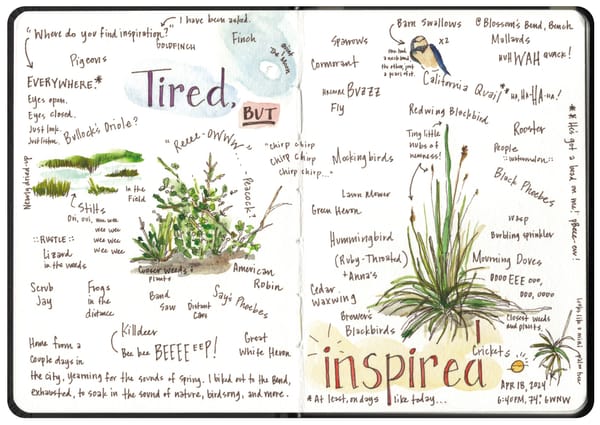 I have been asked.
"Where do you find inspiration?"
GOLDFINCH
Finch
Pigeons
EVERYWHERE.*
Eyes open.
Eyes closed.
Just look.
Just listen.
Tired,
BUT
Bullock's Oriole?
"Reeee-OWWW"
Peacock?
"chirp chirp
chirp chirp
chirp chirp..."
Newly dried-up
In the
Field
Stilts
wee wee
wee wee
wee wee
::RUSTLE::
Lizard
in the weeds
Closer weeds &
plants
American
Robin
Scrub
Jay
Frogs
in the
distance
Band
Saw
Distant
Cars
Say's Phoebes
Killdeer
Bee bee BEEEEeep!
Great
White Heron
Home from a
couple days in
the city, yearning for the sounds of spring. I biked out to the Bend,
exhausted, to soak in the sound of nature, birdsong, and more.
Barn Swallows
x2
@Blossom's Bend, Bench
Mallards
HUH WAH quack!
Sparrows
Cormorant
BUZZ
Fly
California Quail*
HA, HA-HA-HA!
Redwing Blackbird
Tiny little
nubs of
newness!
Rooster
People
Black Phoebes
Mockingbirds
Lawn Mower
Green Heron
Wasp
Burbling sprinkler
Hummingbird
(Ruby-Throated)
+ Anna's
Mourning Doves
OOOO EEE OOO,
OOO, OOOO
Cedar
Waxwing
Brewer's
Blackbirds
Closest weeds
and plants.
Crickets
inspired
*At least, on days like today...
APR 18, 2024
6:40PM, 74°, 6WNW
** He's got a bead on me!
Looks like a mini palm tree